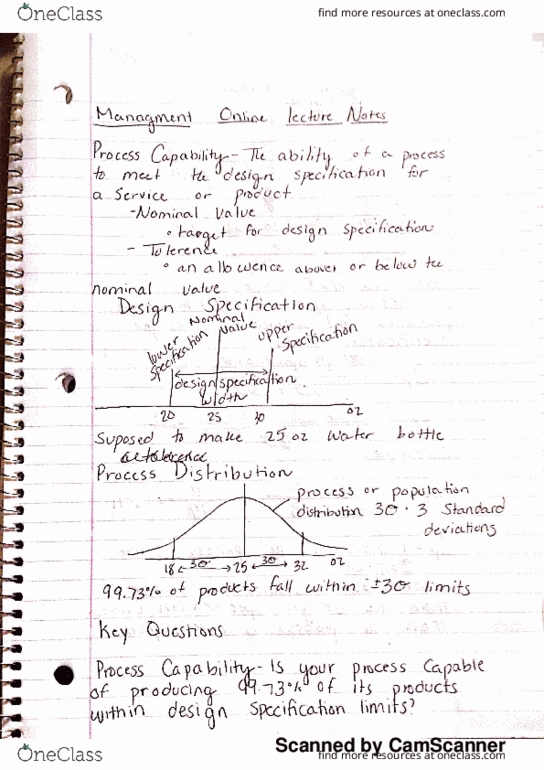 OneClass
find more resources at oneclass.com
Managment Online lecture Notes
Process Capability - The ability of a process
to meet the design specification for
a service or product
- Nominal Value
• target for design specification
- Tolerence
• an allowence above or below the
nominal value
Design Specification
lower Specification
Nominal Value
upper Specification
design specification width
20 25 30 oz
Suposed to make 25 oz water bottle
Process Distribution
process or population
distribution 3σ · 3 Standard
deviations
18 ← 3σ → 25 ← 3σ → 32 oz
99.73% of products fall within ±3σ limits
Key Questions
Process Capability - Is your process capable
of producing 99.73% of its products
within design specification limits?
Scanned by CamScanner
OneClass
find more resources at oneclass.com